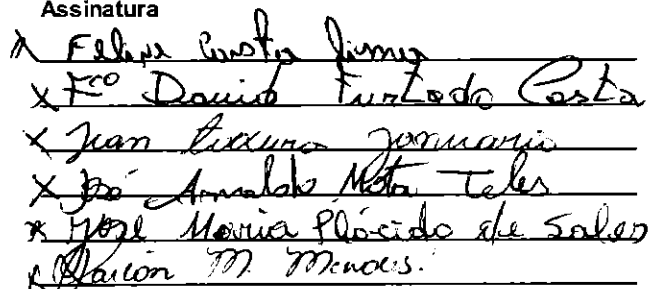 Assinatura
x Felipe Costa
x Fco David Furtado Costa
x Jean Januario
x José Arnaldo Mota Teles
x José Maria Plácido de Sales
x M. Mendes.